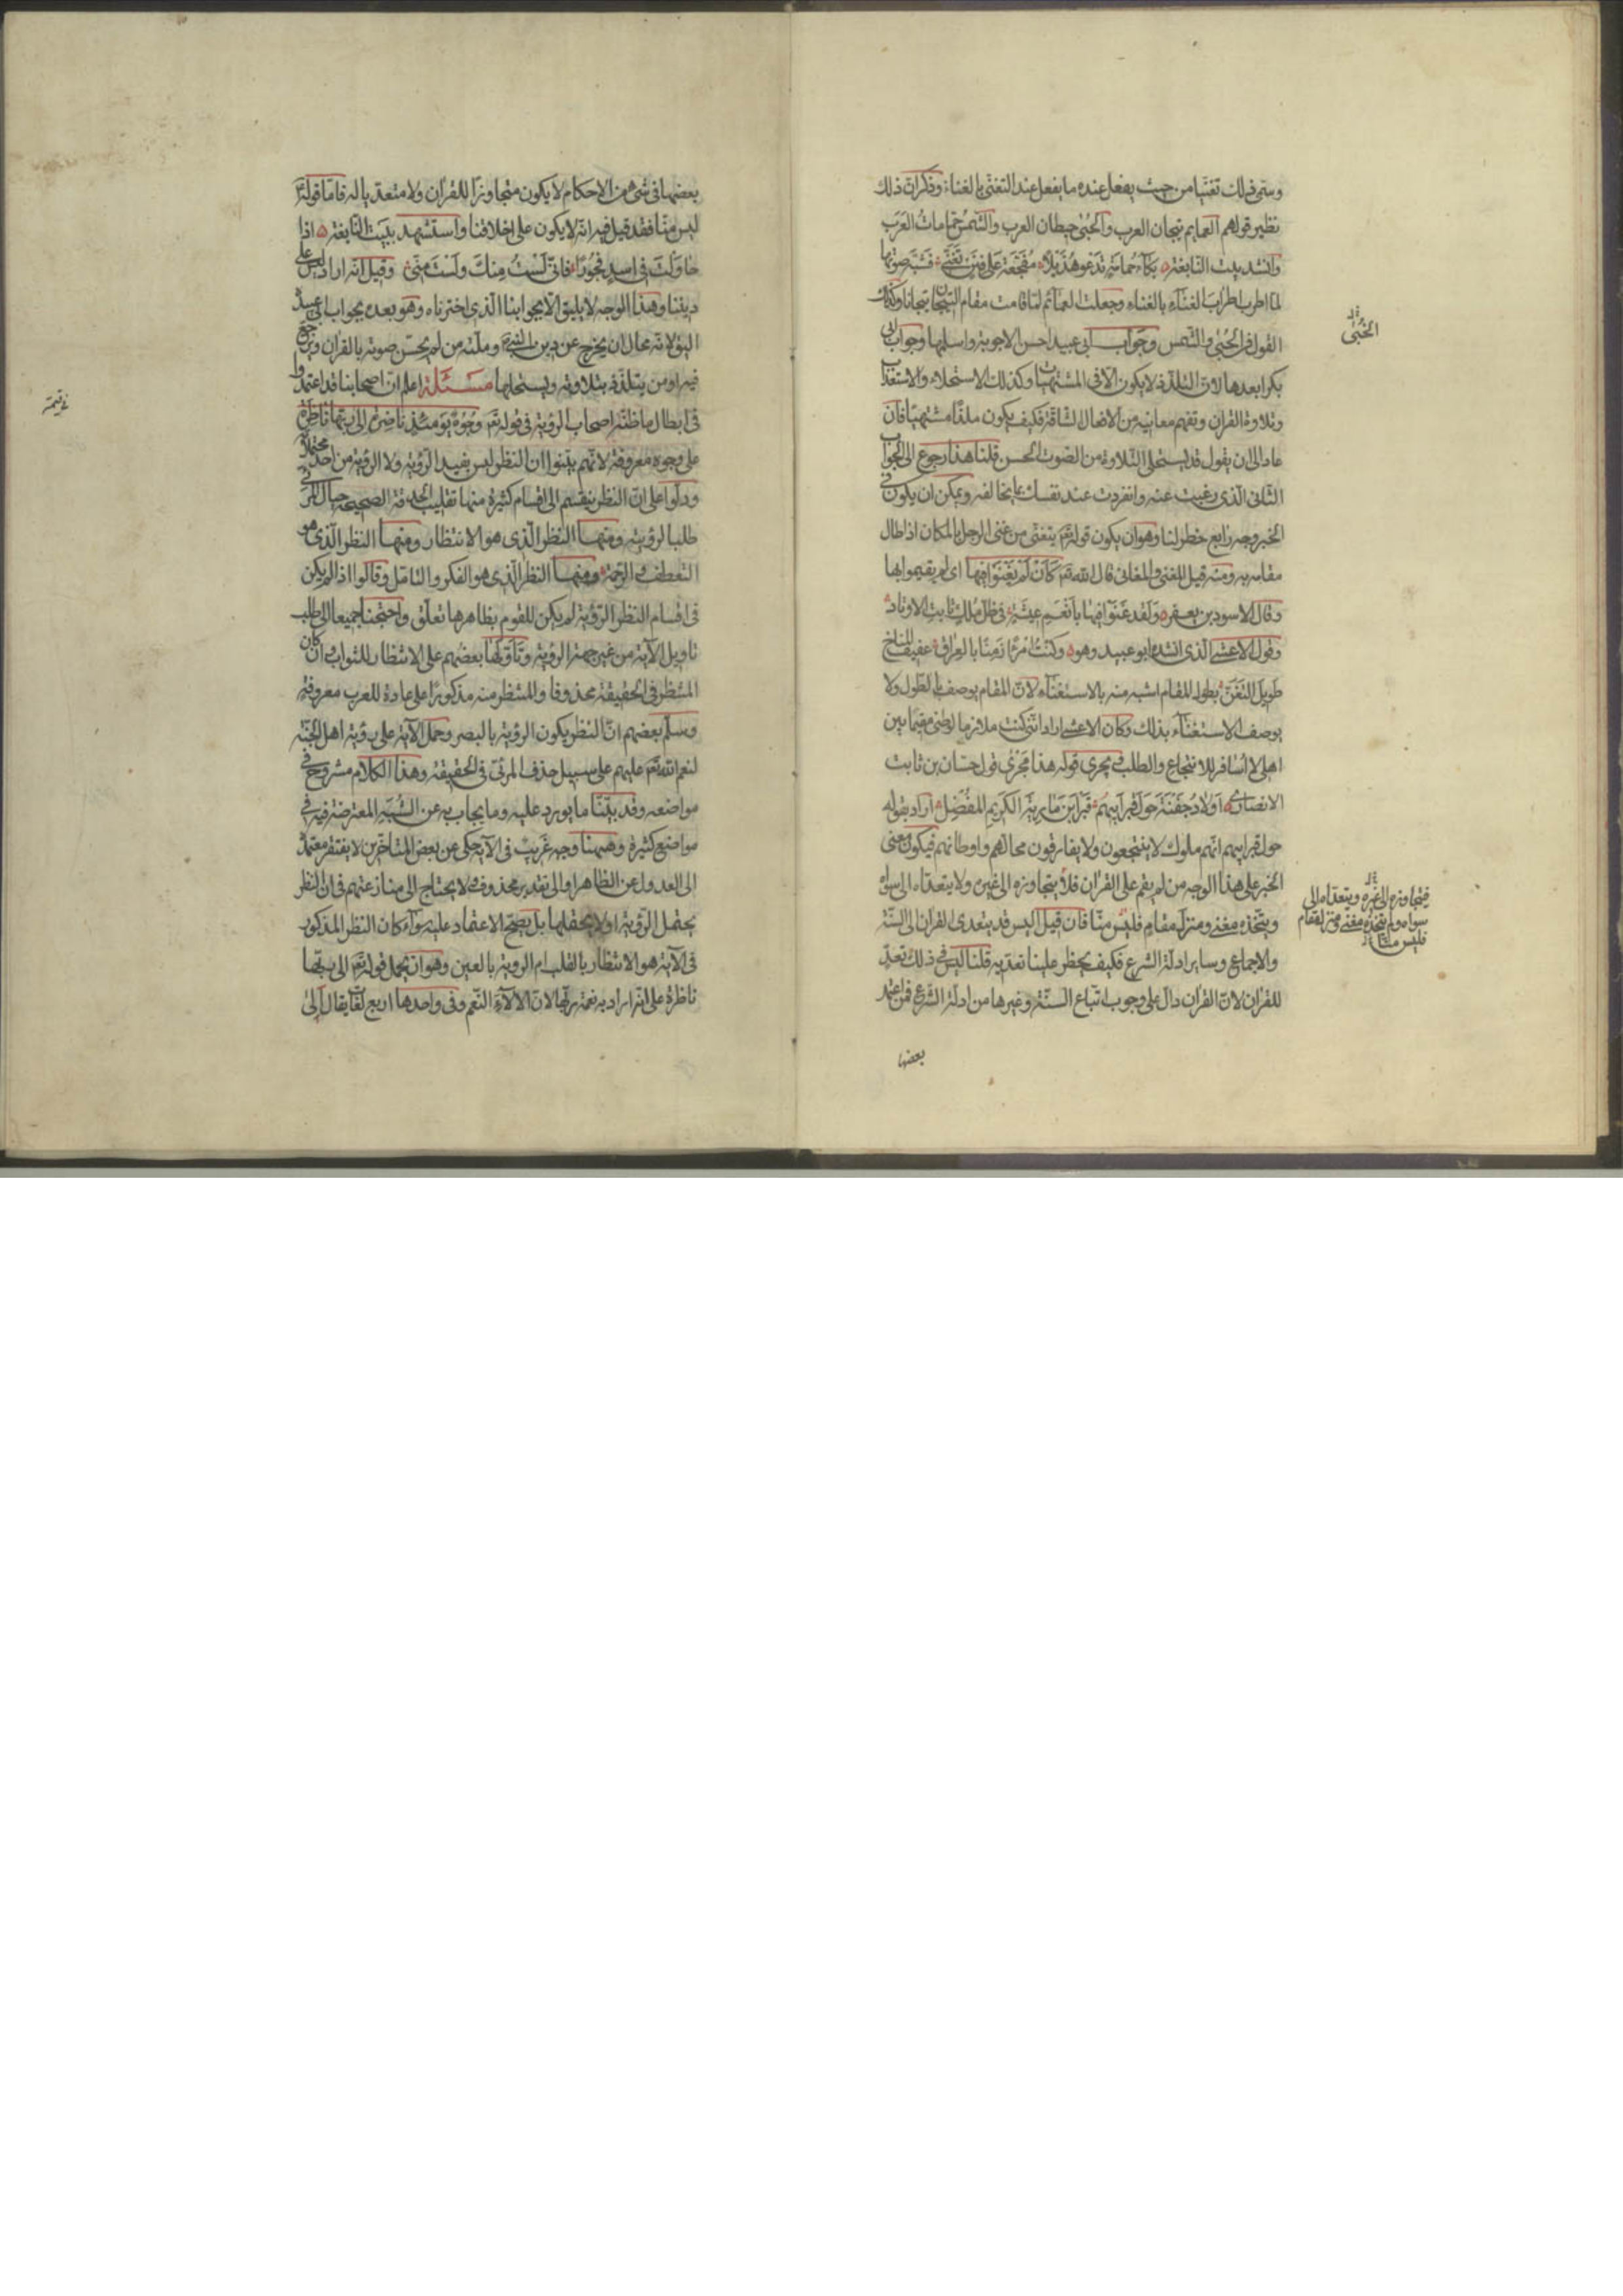 وسمى ذلك تغنيا من حيث يفعل عنده ما يفعل عند التغنى بالغناء وذكر ان ذلك
نظير قولهم العمايم تيجان العرب والحُبى حيطان العرب والشمس حمامات العرب
وانشد بيت النابغة بكاء حمامة تدعو هذيلا مفجعة على فنن تغنى فشبه صوتها
لما اطرب اطراب الغناء بالغناء وجعلت العمائم لما قامت مقام التيجان تيجانا وكذلك
القول فى الحبى والشمس وجواب ابى عبيد احسن الاجوبة واسلمها وجواب ابى
بكر ابعدها لان التلذذ لا يكون الا فى المشتهيات وكذلك الاستحلاء والاستعذاب
وتلاوة القران وتفهم معانيه من الافعال الشاقة فكيف يكون ملذا مشتهيا فان
عاد الى ان يقول قد يستحلى التلاوة من الصوت الحسن قلنا هذا رجوع الى الجواب
الثانى الذى رغبت عنه وانفردت عند نفسك بما يخالفه ويمكن ان يكون فى
الخبر وجه رابع خطر لنا وهو ان يكون قوله يتغنى من غنى الرجل بالمكان اذا طال
مقامه به ومنه قيل المغنى والمغانى قال الله تع كَاَن لَمْ يَغْنَوا فيها اى لم يقيموا بها
وقال الاسود بن يعفر ولقد غَنَوا فيها بأنعم عيشة فى ظل مُلك ثابت الاوتاد
وقول الاعشى الذى انشده ابو عبيد وهو وكنتُ امرءًا زمنًا بالعراق عفيف المناخ
طويل التغن بطول المقام اشبه منه بالاستغناء لان المقام يوصف بالطول ولا
يوصف الاستغناء بذلك وكان الاعشى اراد اننى كنت ملازما لوطنى مقيما بين
اهلى لا اسافر للانتجاع والطلب فيجرى قوله هذا مَجرى قول حسان بن ثابت
الانصارى اولاد جفنة حول قبر ابيهم قبر ابن مارية الكريم المفضل اراد بقوله
حول قبر ابيهم انهم ملوك لا ينتجعون ولا يفارقون محالهم واوطانهم فيكون معنى
الخبر على هذا الوجه من لم يقم على القران فلا يتجاوزه الى غيره ولا يتعداه الى سواه
ويتخذه مغنى ومنزلا ومقام فليس منّا فان قيل اليس قد يتعدى القران الى السنة
والاجماع وساير ادلة الشرع فكيف يحظر علينا تعديه قلنا ليس فى ذلك تعدٍ
للقران لان القران دال على وجوب اتباع السنة وغيرها من ادلة الشرع فمن اعتمد
بعضها
الحُبى
فيتجاوزه الى غيره ويتعداه الى
سواه ولم يتخذه مغنى ومنزلا ومقام
فليس منا
بعضها فى شىء من الاحكام لا يكون متجاوزًا للقران ولا متعديا له فاما قوله
ليس منّا فقد قيل فيه انه لا يكون على اخلاقنا واستشهد ببيت النابغة اذا
حاولت فى اسد فجورًا فانى لَسْتُ مِنكَ ولَسْتَ مِنّى وقيل انه اراد ليس على
ديننا وهذا الوجه لا يليق الا بجوابنا الذى اخترناه وهو بعده بجواب ابى عبيد
اليق لانه محال ان يخرج عن دين النبى وملته من لم يحسّن صوته بالقران ويرجع
فيه او من يتلذذ بتلاوته ويستحليها مسئلة اعلم ان اصحابنا قد اعتمدوا
فى ابطال ما ظنه اصحاب الرؤية فى قوله تع وُجُوهٌ يَومَئذٍ ناضِرة الى رَبّها ناظِرة
على وجوه معروفة لانهم بيّنوا ان النظر ليس يفيد الرؤية ولا الرؤية من احد محتملاته
ودلّوا على ان النظر ينقسم الى اقسام كثيرة منها تقليب الحدقة الصحيحة حيال المرئى
طلبا لرؤيته ومنها النظر الذى هو الانتظار ومنها النظر الذى هو
التعطف والرحمة ومنها النظر الذى هو الفكر والتامّل وقالوا اذا لم يكن
فى اقسام النظر الرؤية لم يكن للقوم بظاهرها تعلّق واحتجنا جميعا الى طلب
تاويل الآية من غير جهة الرؤية وتأوّلها بعضهم على الانتظار للثواب وان كان
المنتظر فى الحقيقة محذوفا والمنتظر منه مذكورًا على عادة للعرب معروفة
وسلّم بعضهم ان النظر يكون الرؤية بالبصر وحمل الآية على رؤية اهل الجنّة
لنعم الله تع عليهم على سبيل حذف المرئى فى الحقيقة وهذا الكلام مشروح فى
مواضعه وقد بيّنّا ما يورد عليه وما يجاب به عن الشُّبَه المعترضة فيه فى
مواضع كثيرة وهيهنا وجه غريب فى الآية حكى عن بعض المتاخرين لا يفتقر معتمده
الى العدول عن الظاهر او الى تقدير محذوف ولا يحتاج الى منازعتهم فى ان النظر
يحتمل الرؤية او لا يحتملها بل يصحّ الاعتماد عليه سواء كان النظر المذكور
فى الآية هو الانتظار بالقلب ام الروية بالعين وهو ان يحمل قوله تع الى ربّها
ناظرة على انه اراد به نعمة ربها لان الالاء النعم وفى واحدها اربع لغات يقال اَلىً